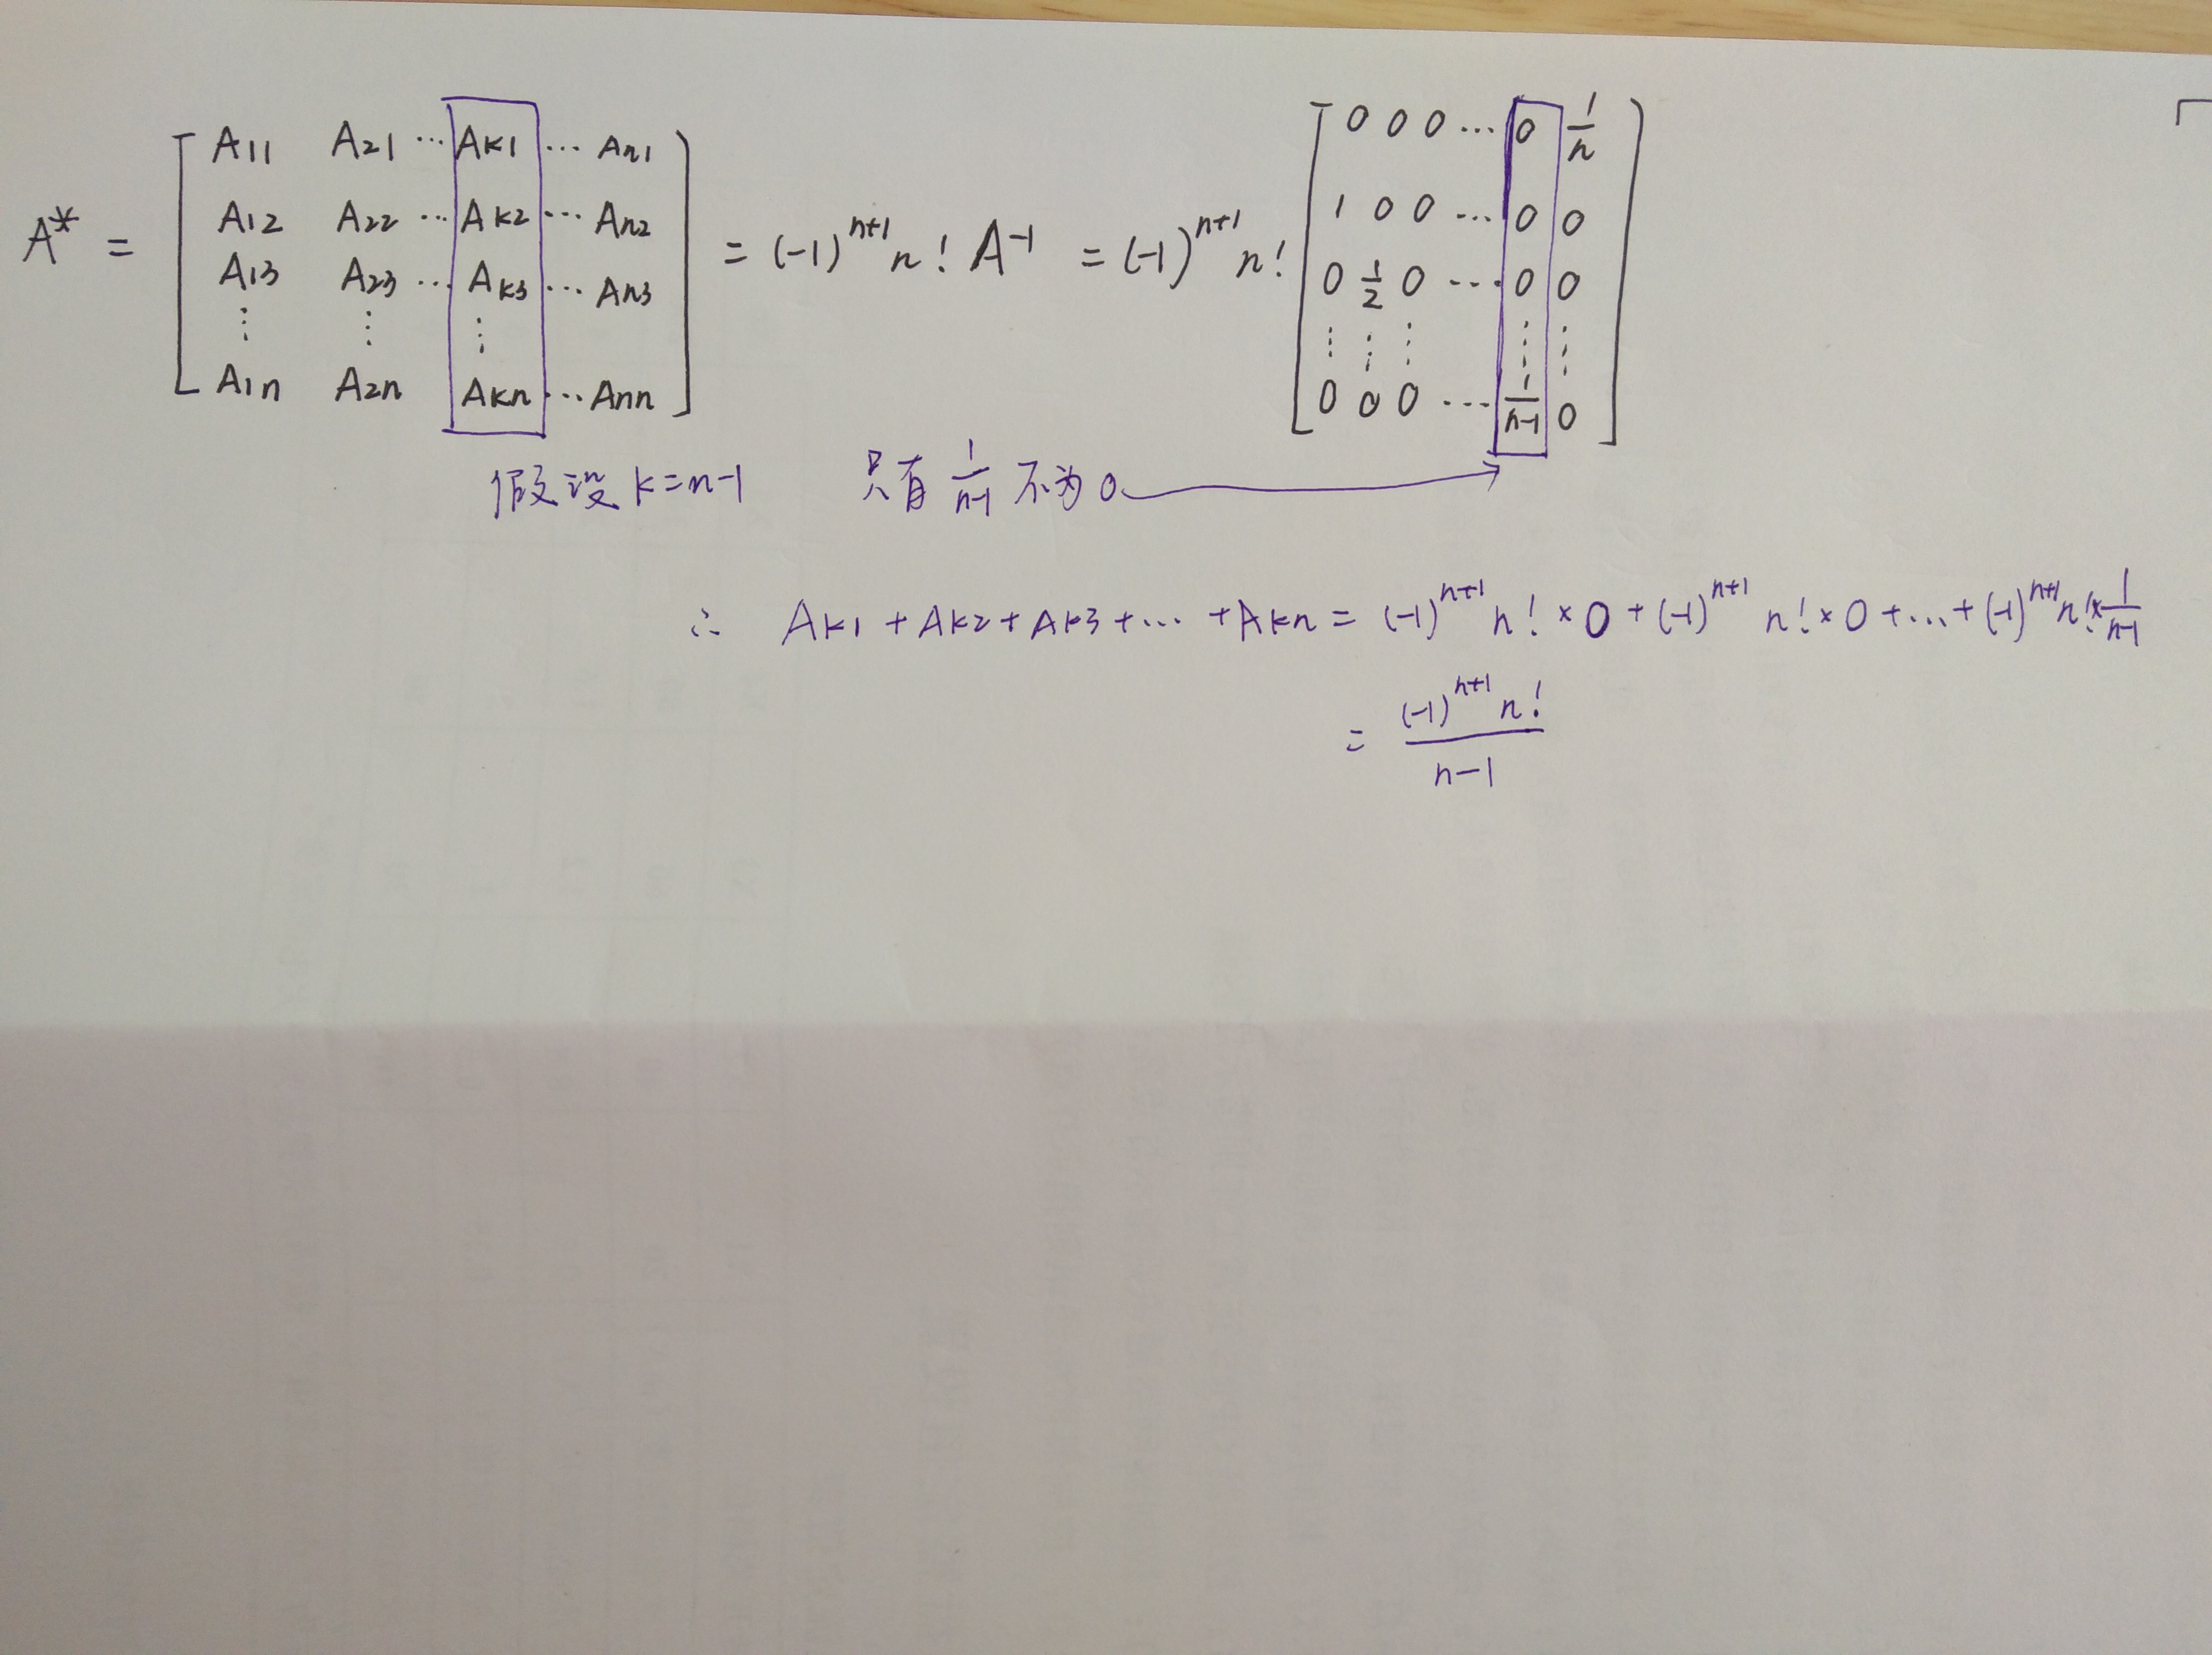 A* = [ A11 A21 ⋯ Ak1 ⋯ An1 ; A12 A22 ⋯ Ak2 ⋯ An2 ; A13 A23 ⋯ Ak3 ⋯ An3 ; ⋮ ⋮ ⋮ ; A1n A2n Akn ⋯ Ann ] = (-1)^{n+1} n! A^{-1} = (-1)^{n+1} n! [ 0 0 0 ⋯ 0 1/n ; 1 0 0 ⋯ 0 0 ; 0 1/2 0 ⋯ 0 0 ; ⋮ ⋮ ⋮ ⋮ ⋮ ; 0 0 0 ⋯ 1/(n-1) 0 ]
假设 k=n-1 只有 1/(n-1) 不为 0
∴ Ak1 + Ak2 + Ak3 + ⋯ + Akn = (-1)^{n+1} n! × 0 + (-1)^{n+1} n! × 0 + ⋯ + (-1)^{n+1} n! × 1/(n-1)
= (-1)^{n+1} n! / (n-1)